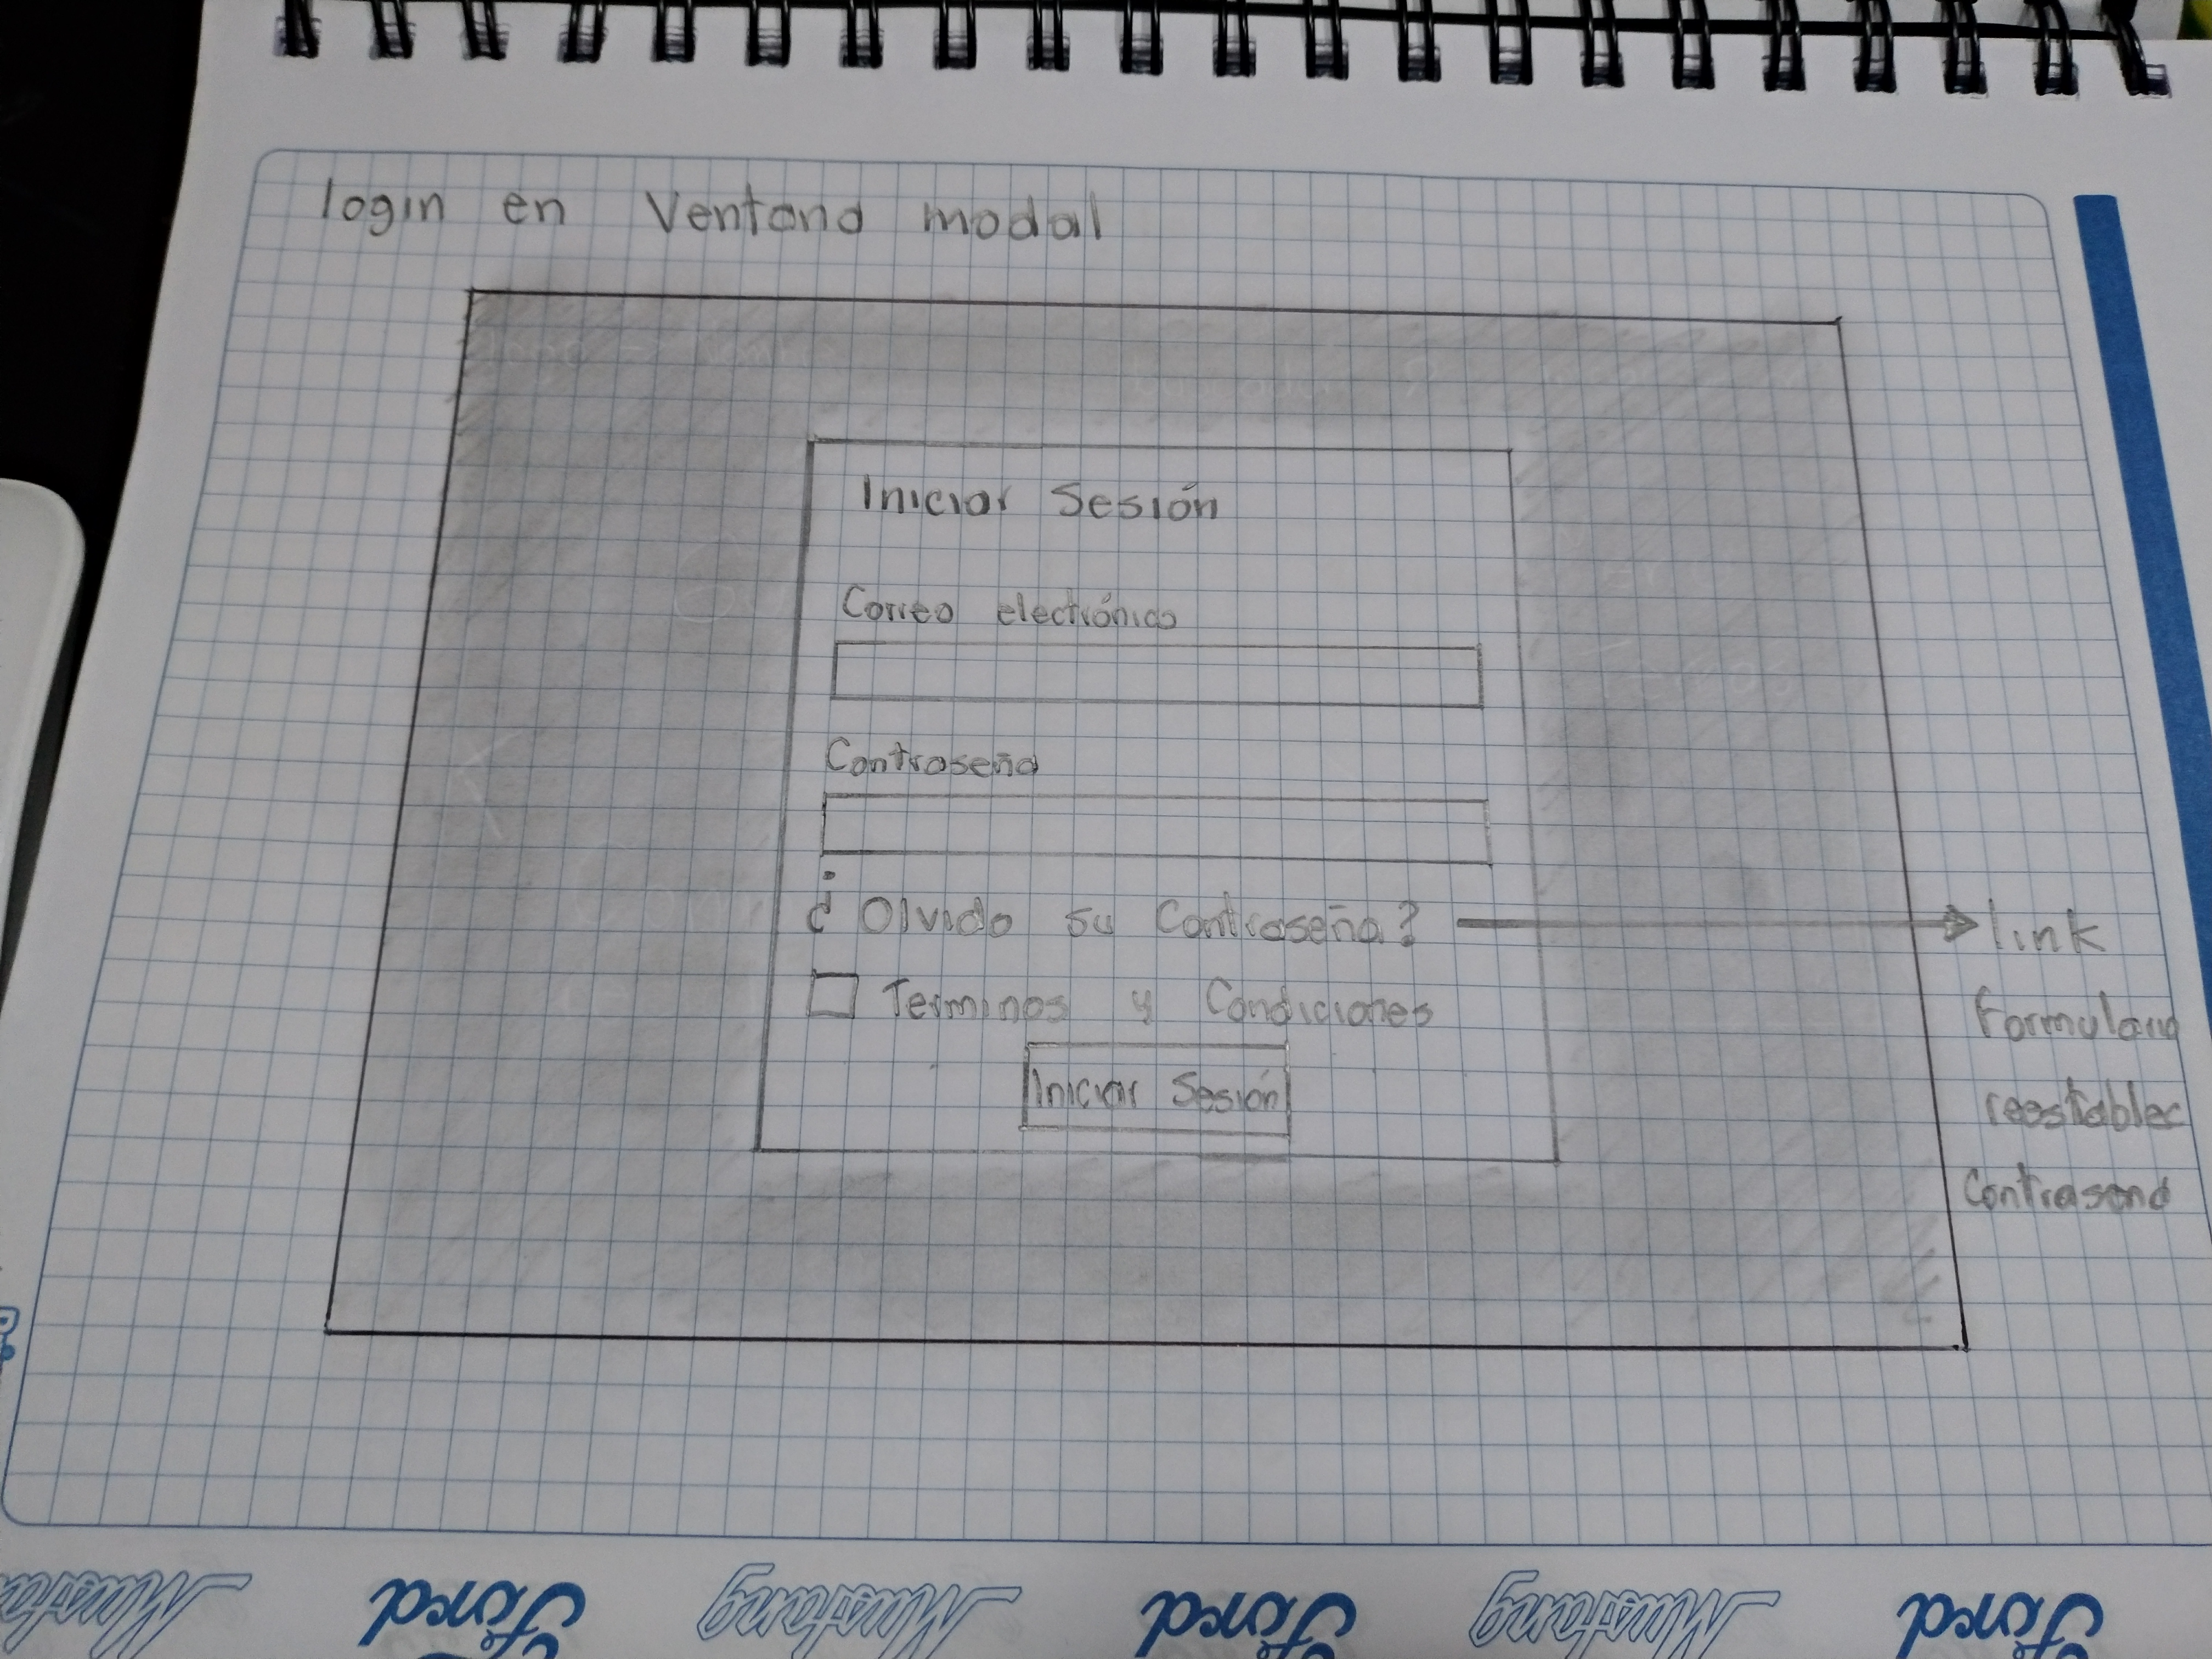 login en Ventana modal
Iniciar Sesión
Correo electrónico
Contraseña
¿Olvido su Contraseña? link
Formulario
reestablec
Contrasena
Terminos y Condiciones
Iniciar Sesión
Mustang Ford Mustang Ford Mustang Ford